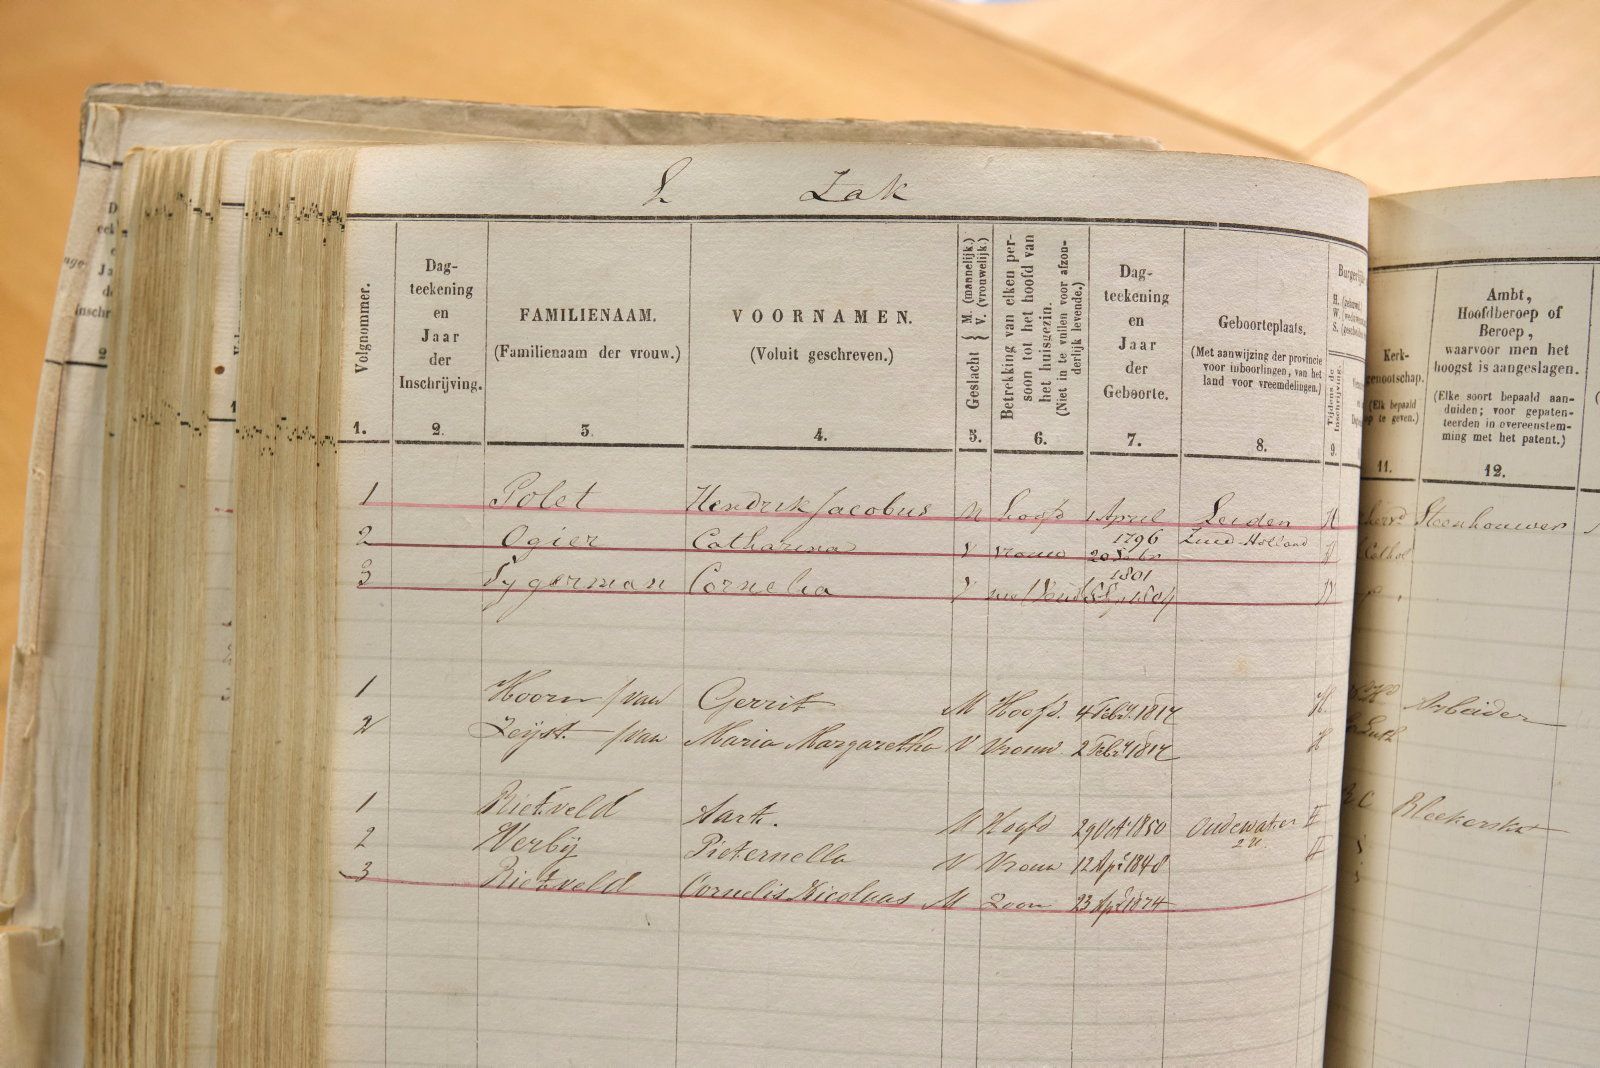 Zak
Volgnommer.
1.
Dag-
teekening
en
Jaar
der
Inschrijving.
2.
FAMILIENAAM.
(Familienaam der vrouw.)
3.
VOORNAMEN.
(Voluit geschreven.)
4.
Geslacht { M. (mannelijk.)
V. (vrouwelijk.)
5.
Betrekking van elken per-
soon tot het hoofd van
het huisgezin.
(Niet in te vullen voor afzon-
derlijk levende.)
6.
Dag-
teekening
en
Jaar
der
Geboorte.
7.
Geboorteplaats,
(Met aanwijzing der provincie
voor inboorlingen, van het
land voor vreemdelingen.)
8.
Burgerlijke
Tijdens de
Inschrijving.
9.
Kerk-
genootschap.
(Elk bepaald
op te geven.)
11.
Ambt,
Hoofdberoep of
Beroep,
waarvoor men het
hoogst is aangeslagen.
(Elke soort bepaald aan-
duiden; voor gepaten-
teerden in overeenstem-
ming met het patent.)
12.
1 Polet Hendrik Jacobus M hoofd 1 April 1796 Leiden H Steenhouwer
Zuid-Holland
2 Ogier Catharina V vrouw 1801 H
3 Tygerman Cornelia V W
1 Hoorn /van Gerrit M Hoofd. 4 Febr. 1817 H. Arbeider
2 Zeijst /van Maria Margaretha V Vrouw 2 Febr 1817 H Luth
1 Rietveld Aart. M Hoofd 29 Oct 1850 Oudewater H R C Bleekersk
2 Verbij Pieternella V Vrouw 12 Apr 1848 H
3 Rietveld Cornelis Nicolaas M Zoon 23 Apr 1874